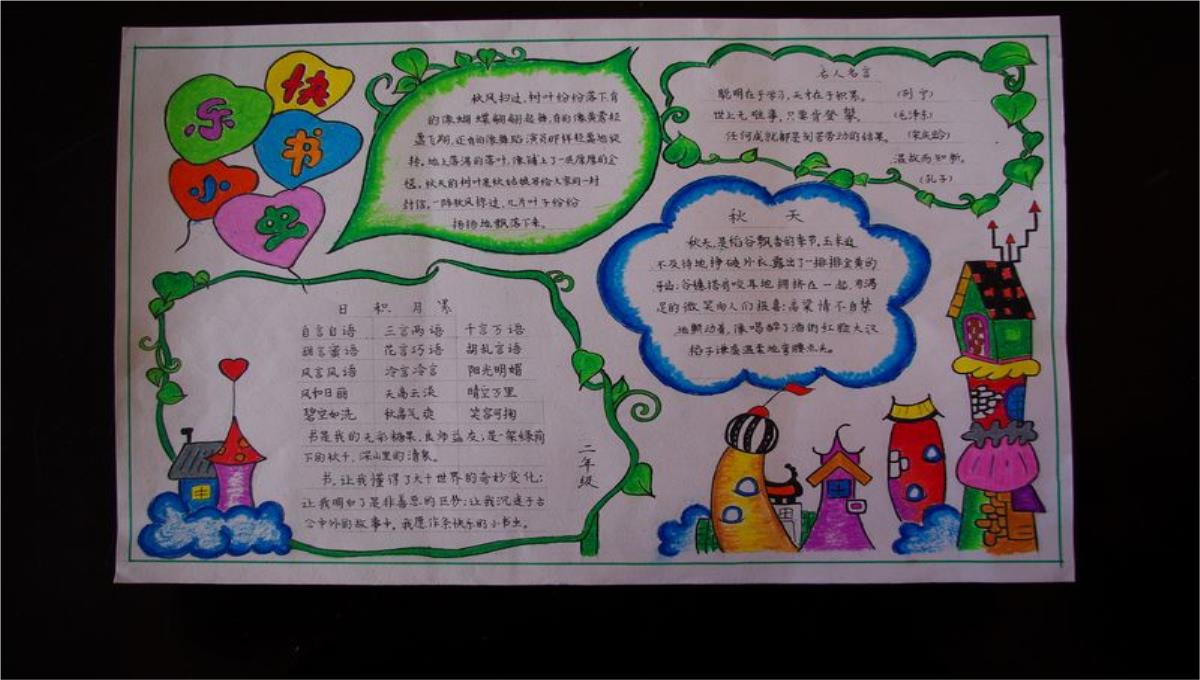 快
乐
书
小
虫
秋风扫过，树叶纷纷落下。有
的像蝴蝶翩翩起舞，有的像黄莺轻
盈飞翔，还有的像舞蹈演员那样轻盈地旋
转。地上落满的落叶，像铺上了一床厚厚的金
毯。秋天的树叶是秋姑娘写给大家的一封
封信，一阵秋风掠过，几片叶子纷纷
扬扬地飘落下来。
名人名言
聪明在于学习，天才在于积累。 （列宁）
世上无难事，只要肯登攀。 （毛泽东）
任何成就都是刻苦劳动的结果。 （宋庆龄）
温故而知新。
（孔子）
秋 天
秋天，是稻谷飘香的季节，玉米迫
不及待地挣破外衣，露出了一排排金黄的
牙齿；谷穗搭肩咬耳地拥挤在一起，用满
足的微笑向人们报喜；高粱情不自禁
地颤动着，像喝醉了酒的红脸大汉
稻子谦虚温柔地弯腰点头。
日 积 月 累
自言自语 三言两语 千言万语
甜言蜜语 花言巧语 胡乱言语
风言风语 冷言冷言 阳光明媚
风和日丽 天高云淡 晴空万里
碧空如洗 秋高气爽 笑容可掬
书是我的七彩糖果，良师益友，是一架绿荫
下的秋千，深山里的清泉。
书，让我懂得了大千世界的奇妙变化；
让我明白了是非善恶的区别；让我沉迷于古
今中外的故事中。我愿作条快乐的小书虫。
二年级